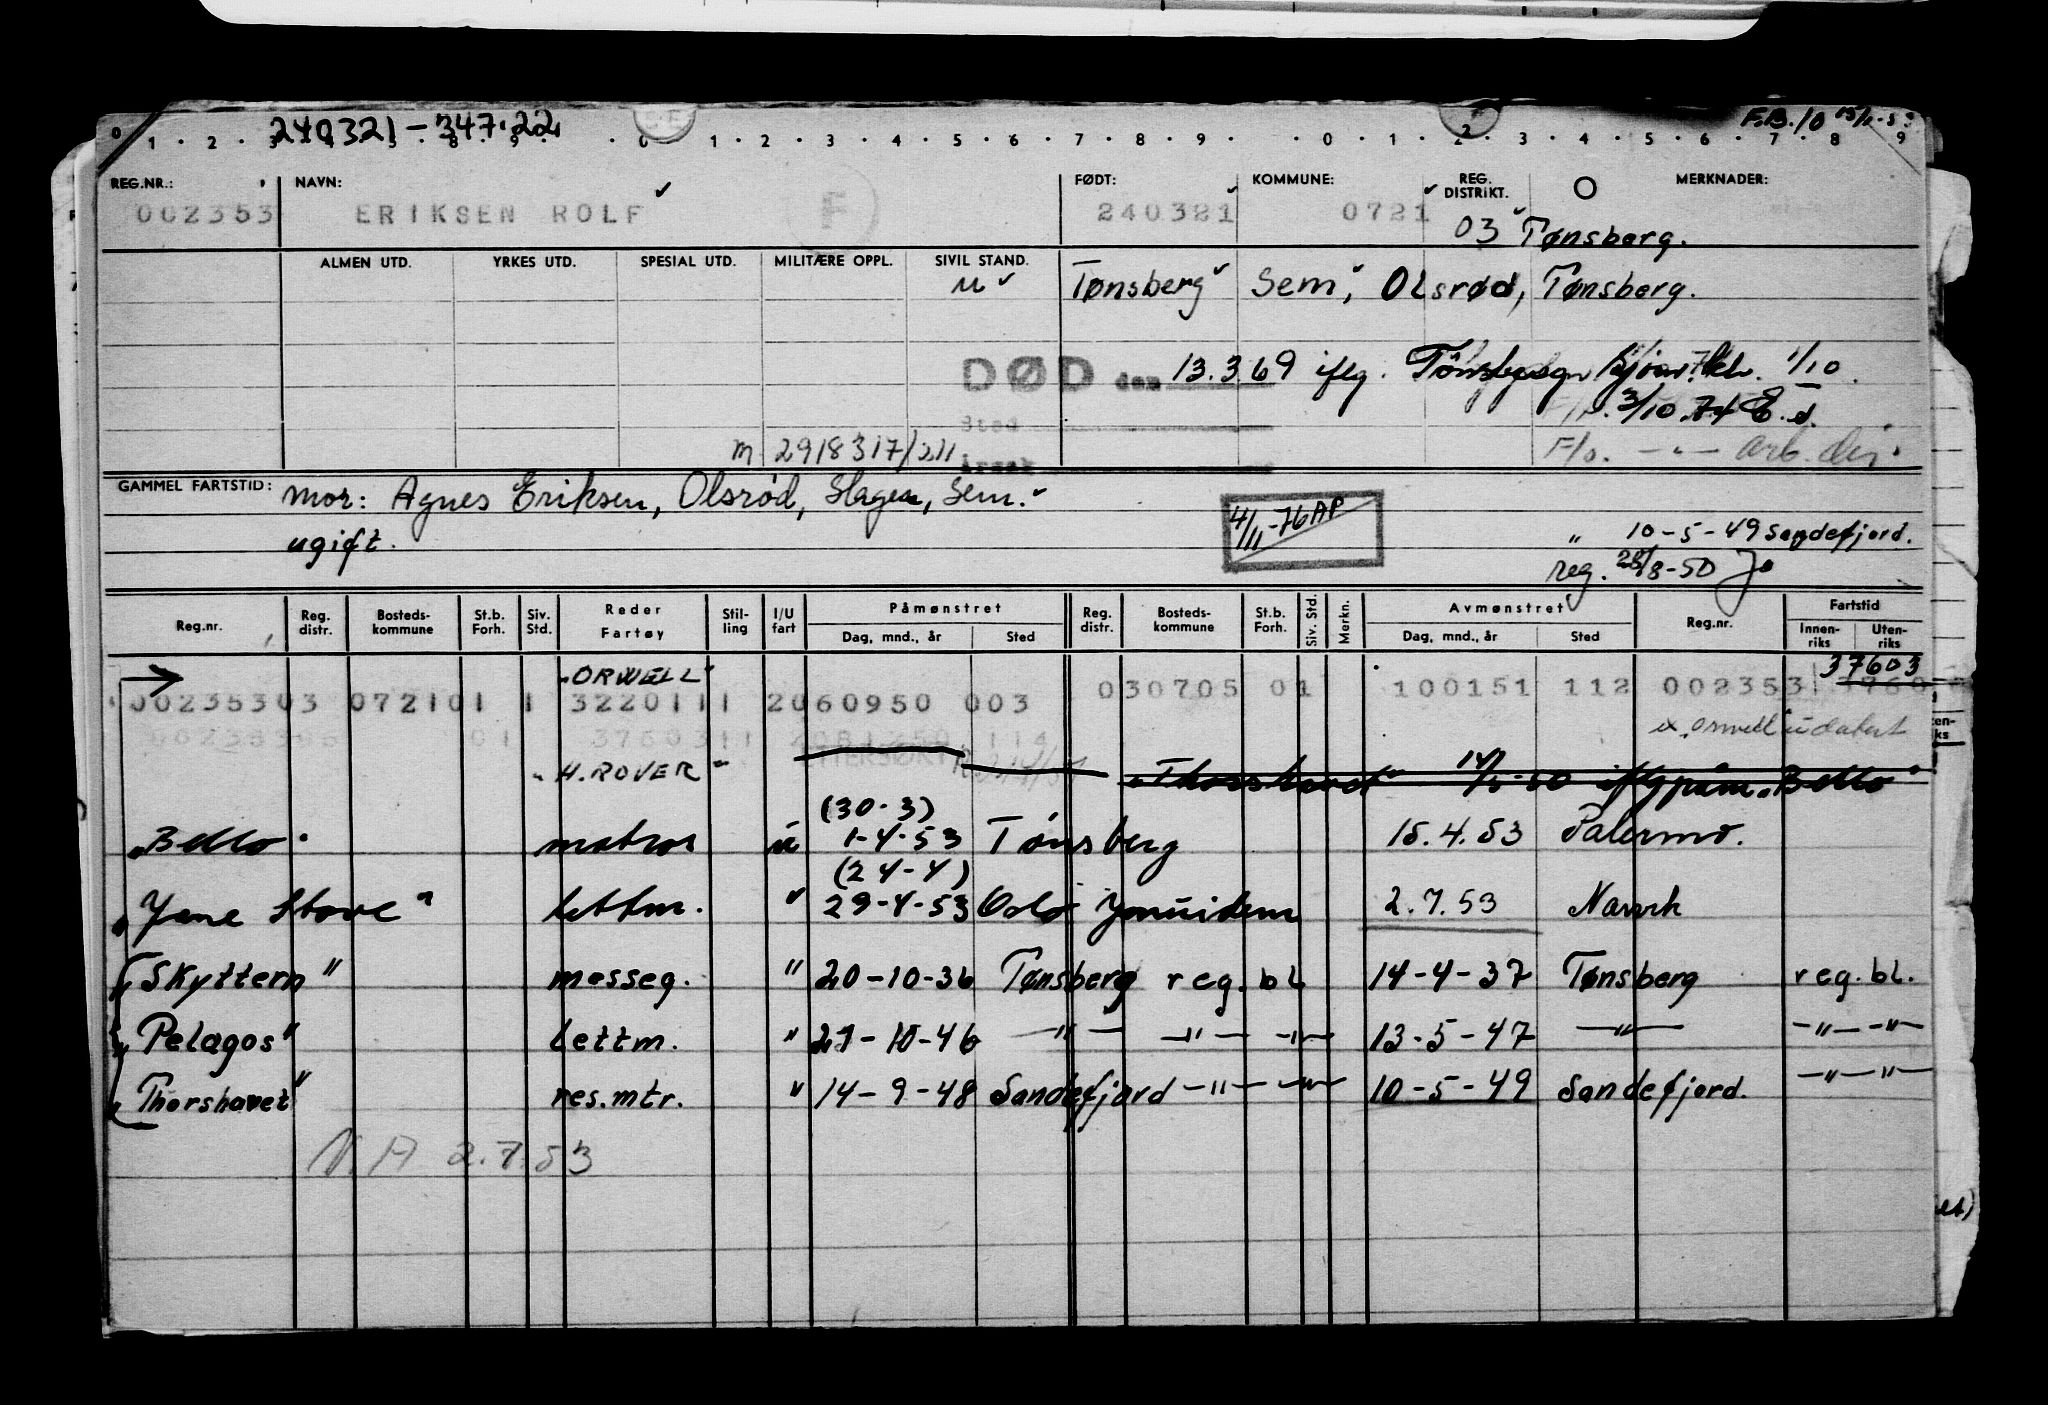 240321-347.22. F.B./0
0 1 2 3 4 5 6 7 8 9 0 1 2 3 4 5 6 7 8 9 0 1 2 3 4 5 6 7 8 9
REG.NR.: NAVN: FØDT: KOMMUNE: REG. DISTRIKT. MERKNADER:
002353 ERIKSEN ROLF F 240321 0721 03 Tønsberg.
ALMEN UTD. YRKES UTD. SPESIAL UTD. MILITÆRE OPPL. SIVIL STAND.
u Tønsberg Sem, Olsrød, Tønsberg.
DØD den 13.3 69 iflg. 1/10
Sted 3/10.74
m 2918317/211 Årsak F/o. -"- arb.dir.
GAMMEL FARTSTID: Mor: Agnes Eriksen, Olsrød, Slagen, Sem.
4/11-76 AP
ugift. " 10-5-49 Sandefjord.
reg. 28/8-50
Reg.nr. Reg. distr. Bosteds-kommune St.b. Forh. Siv. Std. Reder Fartøy Stil-ling I/U fart Påmønstret Dag, mnd., år Sted Reg. distr. Bosteds-kommune St.b. Forh. Siv. Std. Merkn. Avmønstret Dag, mnd., år Sted Reg.nr. Fartstid Innen-riks Uten-riks
"ORWELL" 37603
00235303 072101 1 3220111 2060950 003 030705 01 100151 112 002353
"H.ROVER" "Thorshavet" iflg påm. "Bello"
(30-3)
"Bello" matros u 1-4-53 Tønsberg 15.4.53 Palermo.
(24-4)
"Jane Stove" lettm. " 29-4-53 Oslo Ymuiden 2.7.53 Narvik
"Skyttern" messeg. " 20-10-36 Tønsberg reg. bl 14-4-37 Tønsberg reg. bl.
"Pelagos" lettm. " 21-10-46 -"- -"- -"- 13-5-47 -"- -"- -"-
"Thorshavet" res.mtr. " 14-9-48 Sandefjord -"- -"- 10-5-49 Sandefjord. -"- -"-
N.A 2.7.53